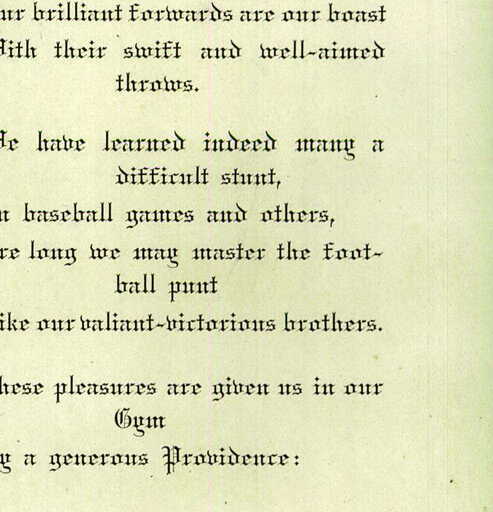 ur brilliant forwards are our boast
ith their swift and well-aimed
throws.
e have learned indeed many a
difficult stunt,
n baseball games and others,
re long we may master the foot-
ball punt
ike our valiant-victorious brothers.
hese pleasures are given us in our
Gym
y a generous Providence: